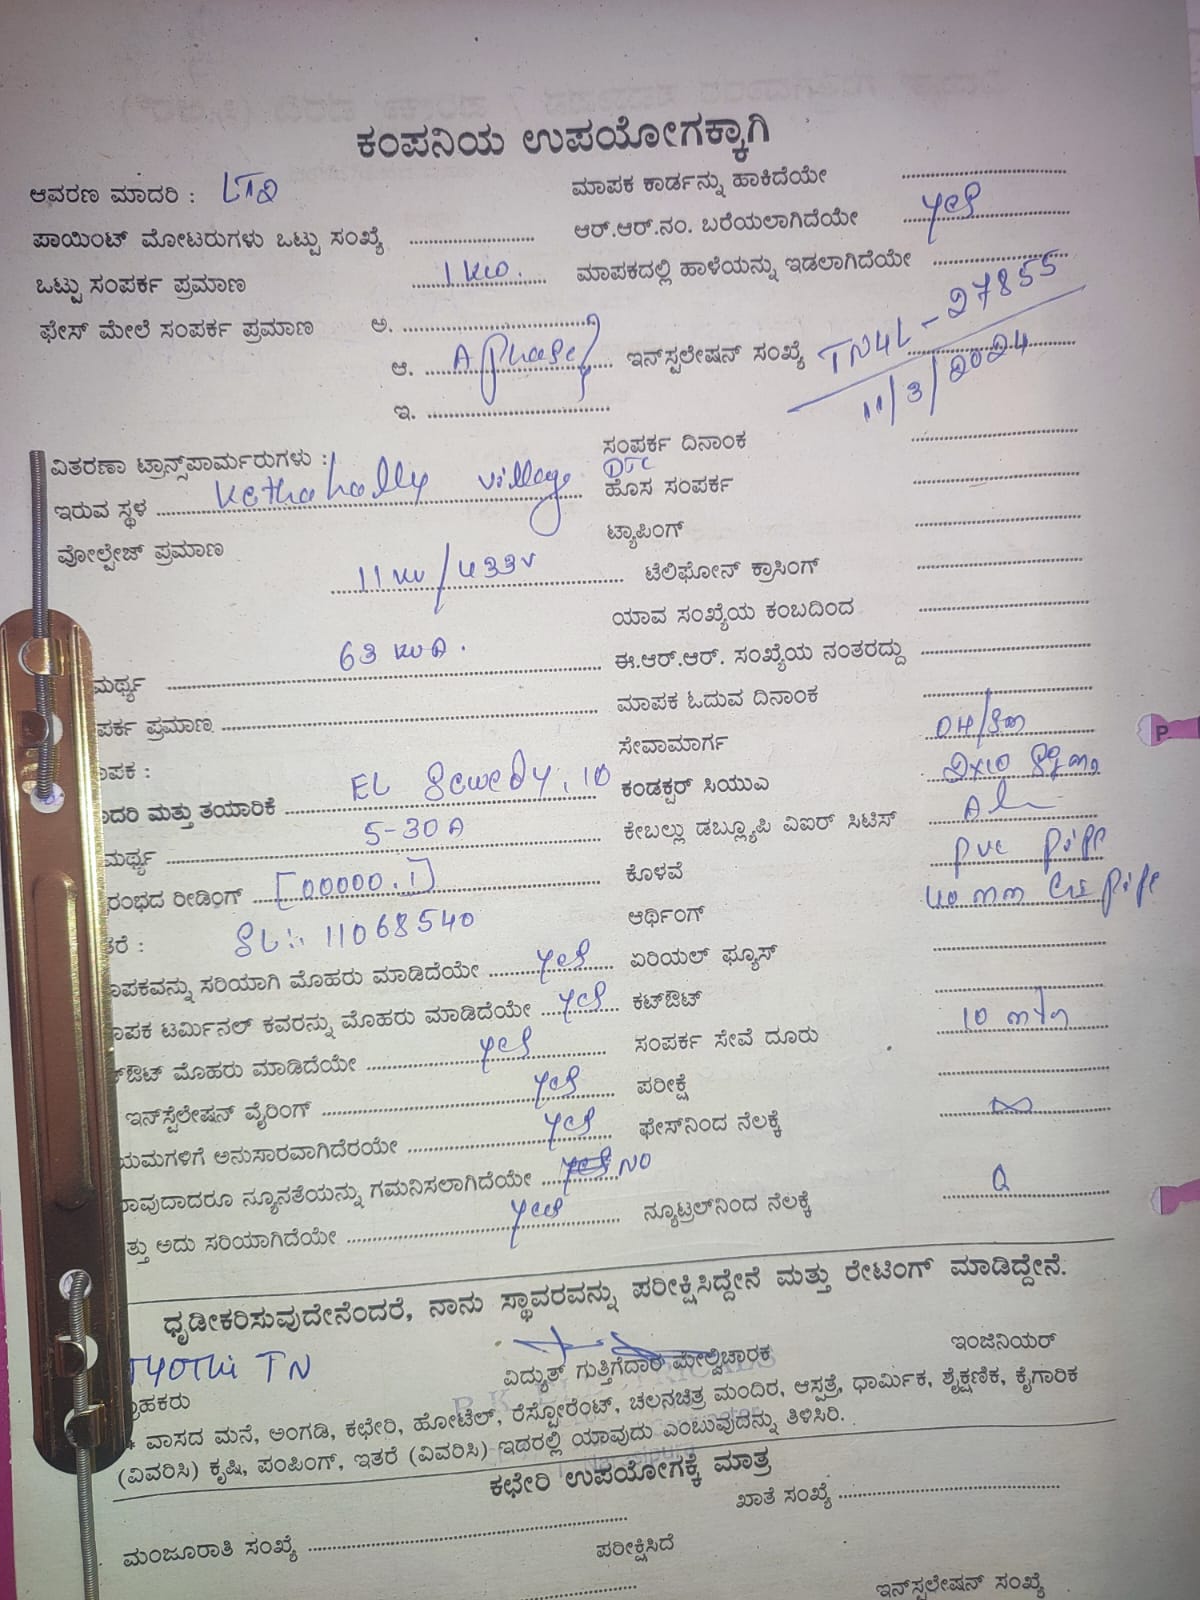 ಕಂಪನಿಯ ಉಪಯೋಗಕ್ಕಾಗಿ
ಆವರಣ ಮಾದರಿ : LT2
ಮಾಪಕ ಕಾರ್ಡನ್ನು ಹಾಕಿದೆಯೇ
ಪಾಯಿಂಟ್ ಮೋಟರುಗಳು ಒಟ್ಟು ಸಂಖ್ಯೆ
ಆರ್.ಆರ್.ನಂ. ಬರೆಯಲಾಗಿದೆಯೇ yes
ಒಟ್ಟು ಸಂಪರ್ಕ ಪ್ರಮಾಣ 1 KW.
ಮಾಪಕದಲ್ಲಿ ಹಾಳೆಯನ್ನು ಇಡಲಾಗಿದೆಯೇ
ಫೇಸ್ ಮೇಲೆ ಸಂಪರ್ಕ ಪ್ರಮಾಣ ಅ.
ಆ. A phase
ಇನ್‌ಸ್ಪಲೇಷನ್ ಸಂಖ್ಯೆ TN4L-27855
11/3/2024
ಇ.
ಸಂಪರ್ಕ ದಿನಾಂಕ
ವಿತರಣಾ ಟ್ರಾನ್ಸ್‌ಪಾರ್ಮರುಗಳು :
ಇರುವ ಸ್ಥಳ Kethahally village DTC
ಹೊಸ ಸಂಪರ್ಕ
ವೋಲ್ಟೇಜ್ ಪ್ರಮಾಣ 11 KV/433V
ಟ್ಯಾಪಿಂಗ್
ಟೆಲಿಫೋನ್ ಕ್ರಾಸಿಂಗ್
ಯಾವ ಸಂಖ್ಯೆಯ ಕಂಬದಿಂದ
ಮರ್ಥ್ಯ 63 KVA.
ಈ.ಆರ್.ಆರ್. ಸಂಖ್ಯೆಯ ನಂತರದ್ದು
ಪರ್ಕ ಪ್ರಮಾಣ
ಮಾಪಕ ಓದುವ ದಿನಾಂಕ
ಪಕ :
ಸೇವಾಮಾರ್ಗ OH/
ದರಿ ಮತ್ತು ತಯಾರಿಕೆ EL Sewedy, 10
ಕಂಡಕ್ಟರ್ ಸಿಯುಎ 2x10 Sqmm
ಮರ್ಥ್ಯ 5-30A
ಕೇಬಲ್ಲು ಡಬ್ಲ್ಯೂಪಿ ವಿಐರ್ ಸಿಟಿಸ್ Al
ರಂಭದ ರೀಡಿಂಗ್ [00000.1]
ಕೊಳವೆ pvc pipe
ತರೆ : SL:. 11068540
ಆರ್ಥಿಂಗ್ 40 mm pipe
ಪಕವನ್ನು ಸರಿಯಾಗಿ ಮೊಹರು ಮಾಡಿದೆಯೇ yes
ಏರಿಯಲ್ ಫ್ಯೂಸ್
ಪಕ ಟರ್ಮಿನಲ್ ಕವರನ್ನು ಮೊಹರು ಮಾಡಿದೆಯೇ yes
ಕಟ್‌ಔಟ್
ಔಟ್ ಮೊಹರು ಮಾಡಿದೆಯೇ yes
ಸಂಪರ್ಕ ಸೇವೆ ದೂರು 10 mtr
ಇನ್‌ಸ್ಪೆಲೇಷನ್ ವೈರಿಂಗ್ yes
ಪರೀಕ್ಷೆ
ಯಮಗಳಿಗೆ ಅನುಸಾರವಾಗಿದೆರಯೇ yes
ಫೇಸ್‌ನಿಂದ ನೆಲಕ್ಕೆ ∞
ರಾವುದಾದರೂ ನ್ಯೂನತೆಯನ್ನು ಗಮನಿಸಲಾಗಿದೆಯೇ NO
ತ್ತು ಅದು ಸರಿಯಾಗಿದೆಯೇ yes
ನ್ಯೂಟ್ರಲ್‌ನಿಂದ ನೆಲಕ್ಕೆ
ಧೃಡೀಕರಿಸುವುದೇನೆಂದರೆ, ನಾನು ಸ್ಥಾವರವನ್ನು ಪರೀಕ್ಷಿಸಿದ್ದೇನೆ ಮತ್ತು ರೇಟಿಂಗ್ ಮಾಡಿದ್ದೇನೆ.
JYOTHI TN
ವಿದ್ಯುತ್ ಗುತ್ತಿಗೆದಾರ ಮೇಲ್ವಿಚಾರಕ
ಇಂಜಿನಿಯರ್
ಹಕರು
* ವಾಸದ ಮನೆ, ಅಂಗಡಿ, ಕಛೇರಿ, ಹೋಟೆಲ್, ರೆಸ್ಟೋರೆಂಟ್, ಚಲನಚಿತ್ರ ಮಂದಿರ, ಆಸ್ಪತ್ರೆ, ಧಾರ್ಮಿಕ, ಶೈಕ್ಷಣಿಕ, ಕೈಗಾರಿಕ
(ವಿವರಿಸಿ) ಕೃಷಿ, ಪಂಪಿಂಗ್, ಇತರೆ (ವಿವರಿಸಿ) ಇದರಲ್ಲಿ ಯಾವುದು ಎಂಬುವುದನ್ನು ತಿಳಿಸಿರಿ.
ಕಛೇರಿ ಉಪಯೋಗಕ್ಕೆ ಮಾತ್ರ
ಖಾತೆ ಸಂಖ್ಯೆ
ಮಂಜೂರಾತಿ ಸಂಖ್ಯೆ
ಪರೀಕ್ಷಿಸಿದೆ
ಇನ್‌ಸ್ಪಲೇಷನ್ ಸಂಖ್ಯೆ